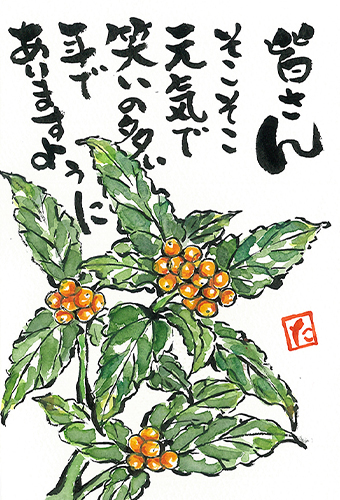 皆さん
そこそこ
元気で
笑いの多い
年で
ありますように
た